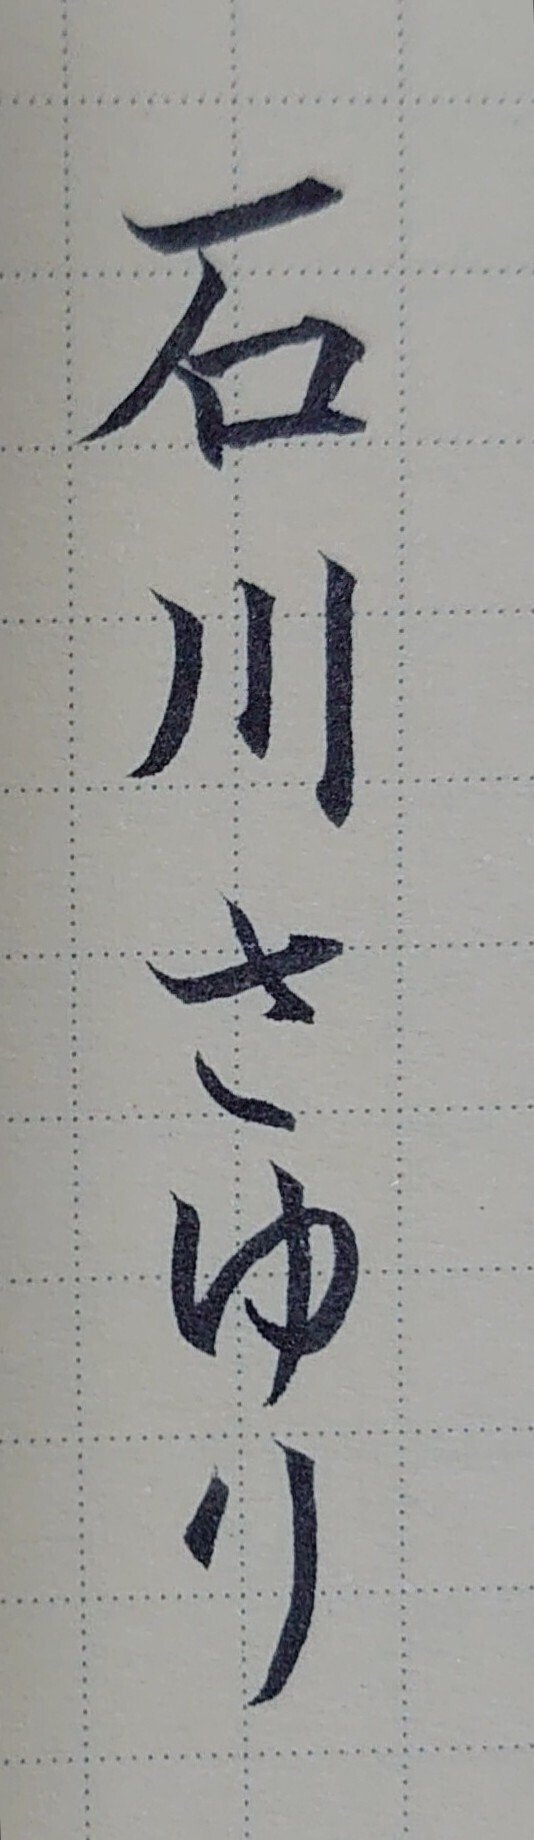 石川さゆり